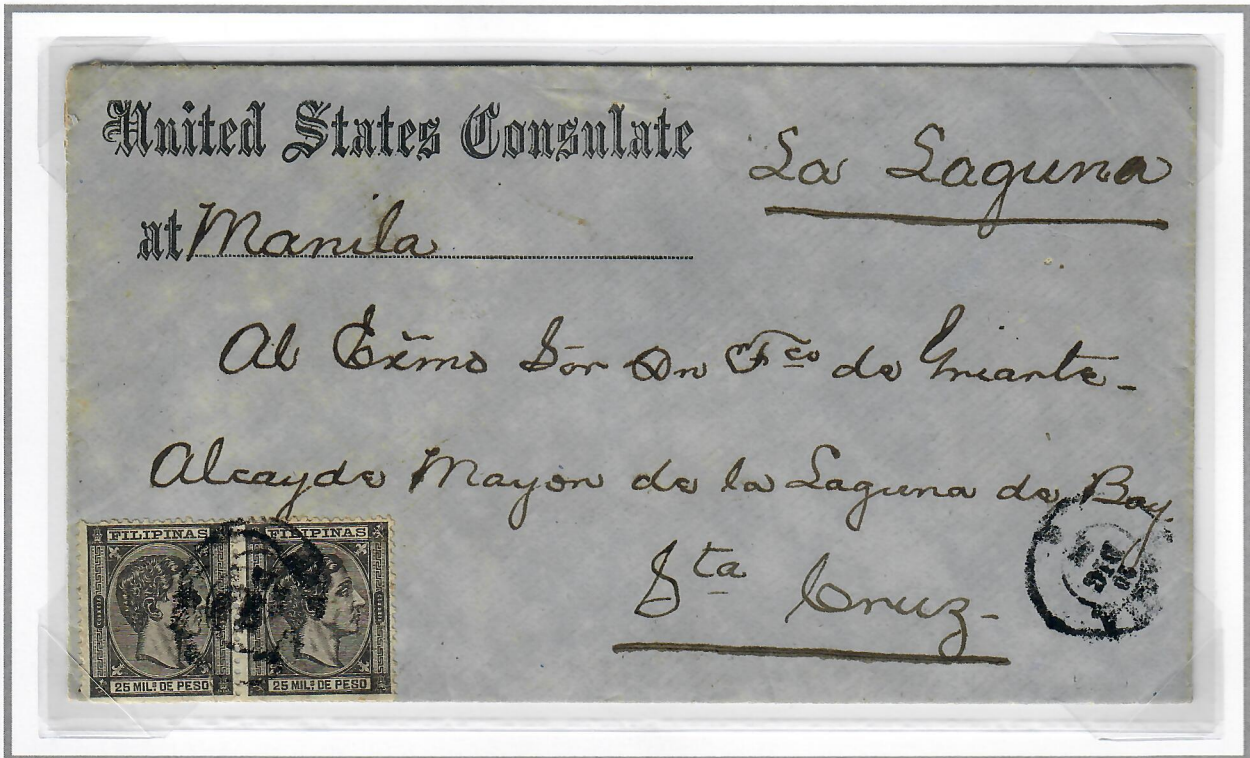 United States Consulate
La Laguna
at Manila
Al Exmo Sor Dn Fco de Yriarte-
Alcayde Mayor de la Laguna de Bay.
Sta Cruz-
FILIPINAS
25 MILS DE PESO
FILIPINAS
25 MILS DE PESO